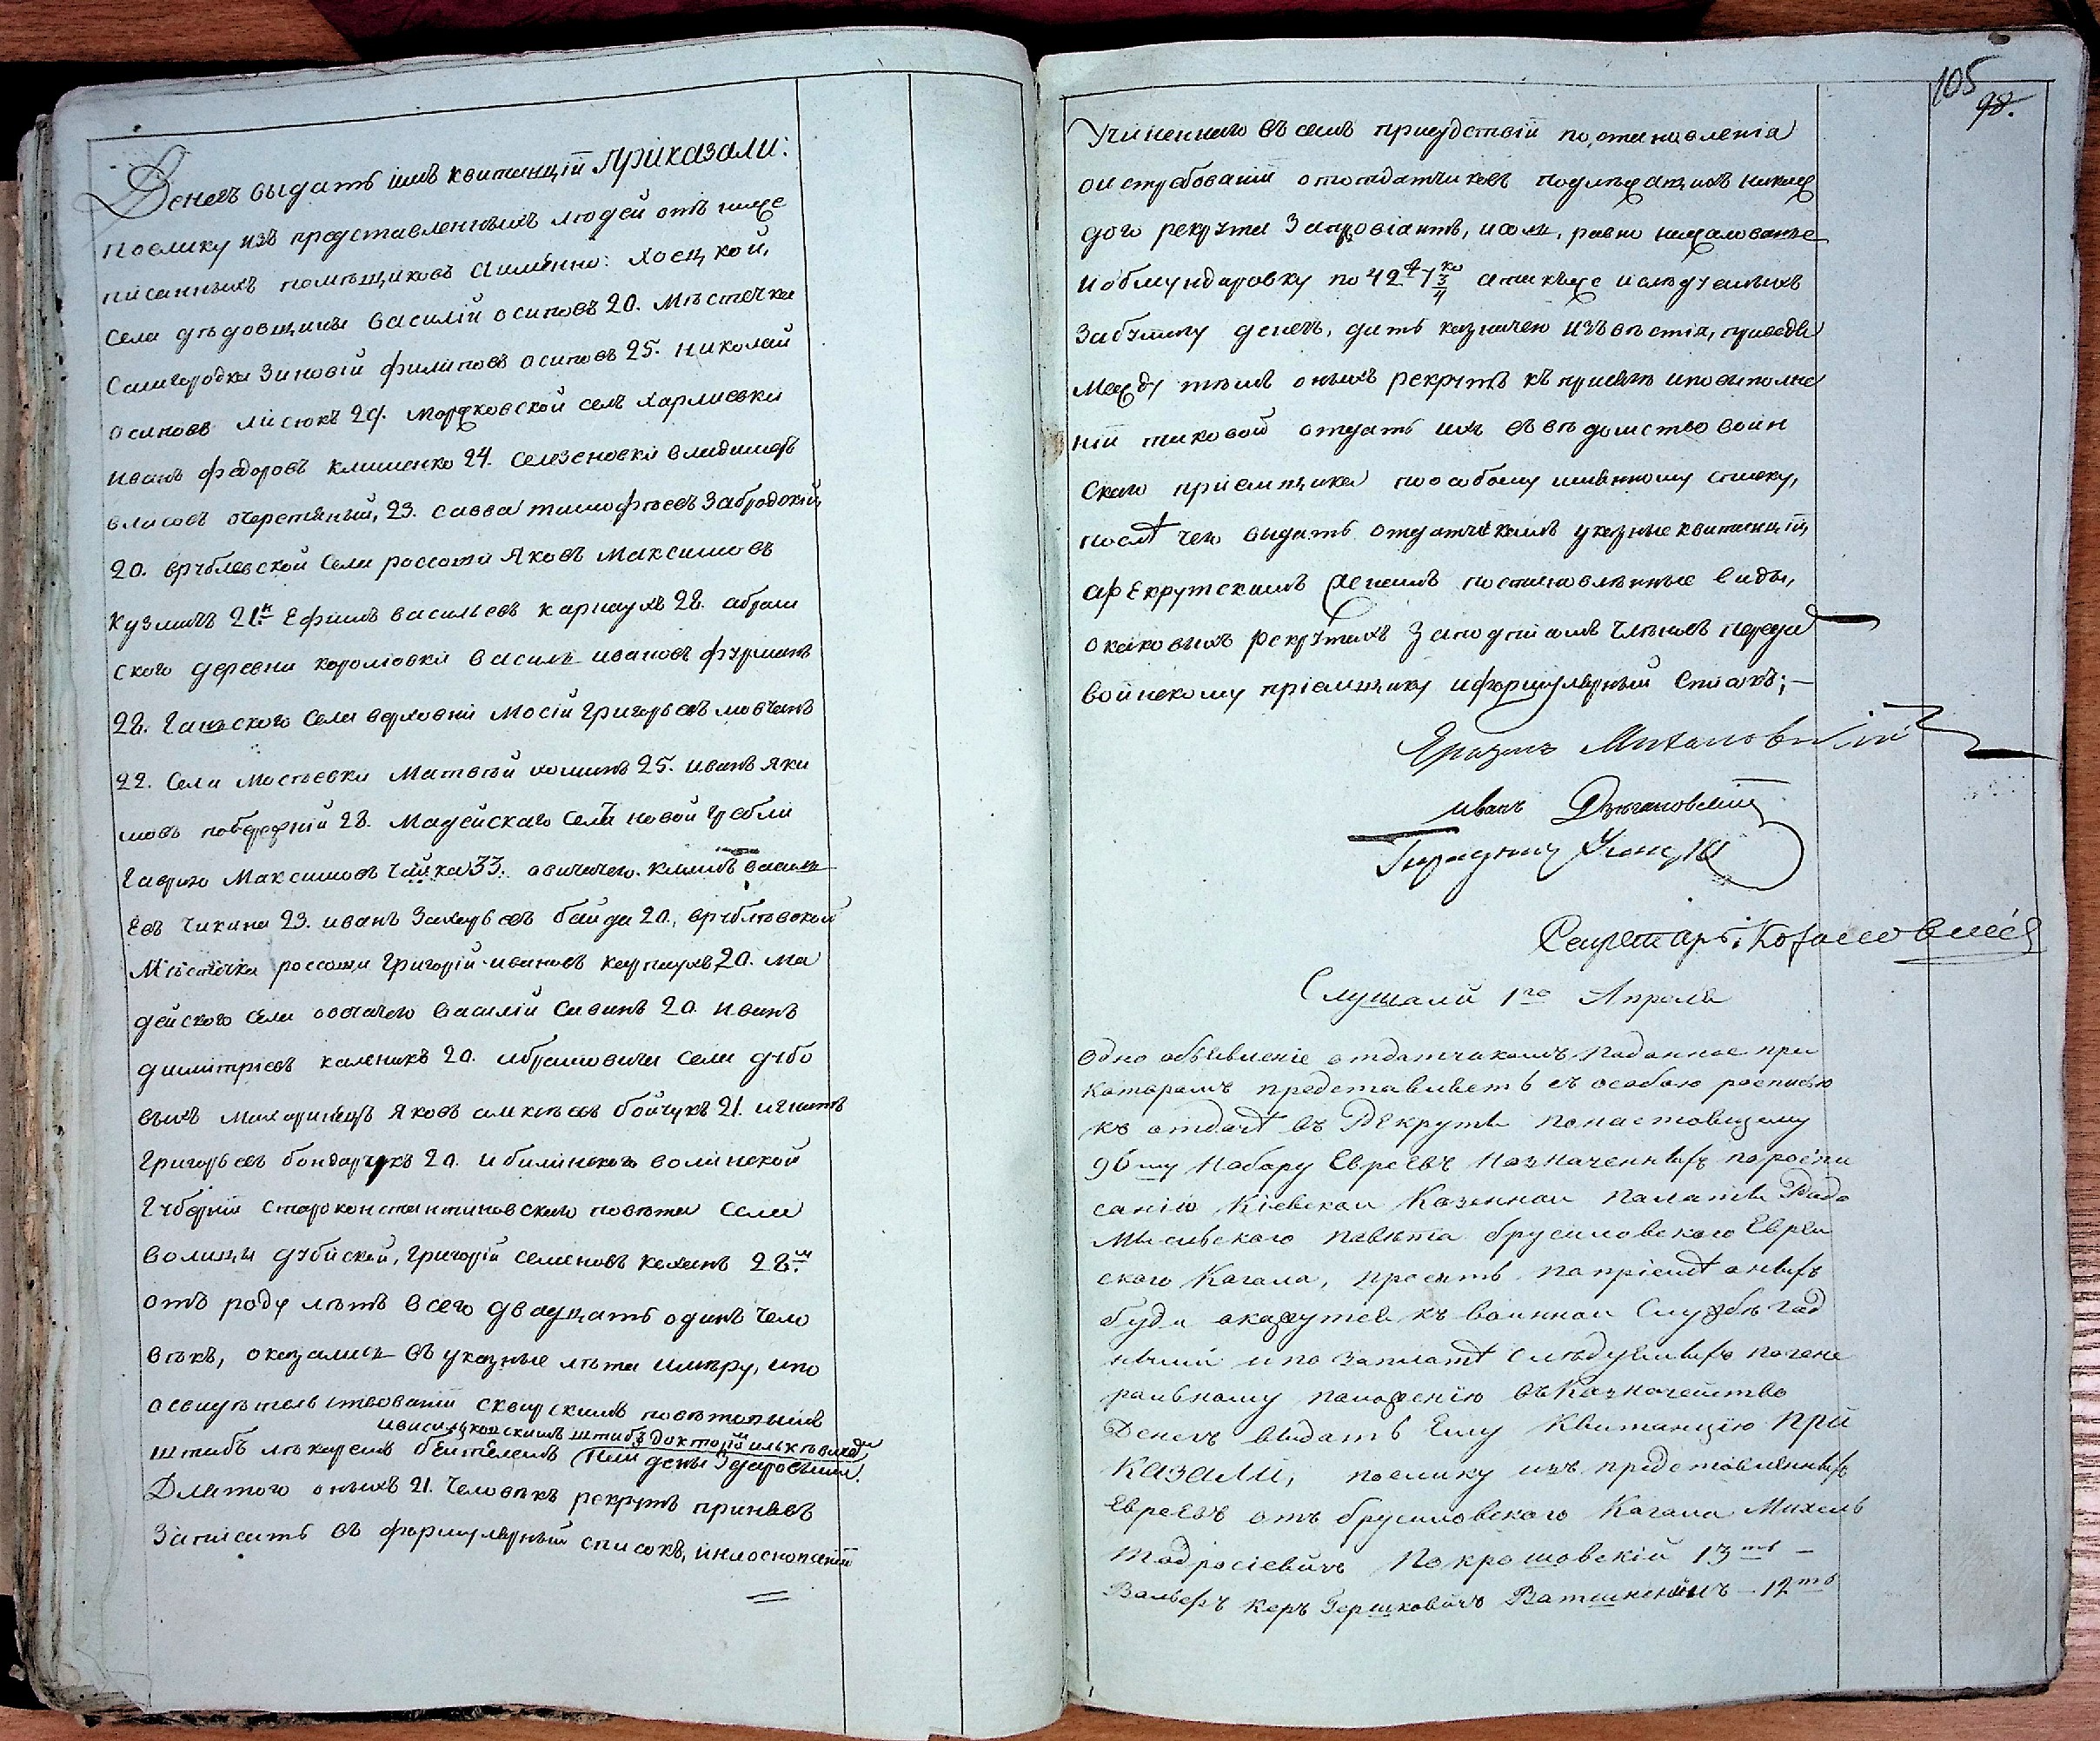 Денегъ выдать имъ квитанцій Приказали:
поелику изъ представленныхъ людей отъ ниже
писанныхъ помѣщиковъ аимѣнно: Хоецкой,
Села дѣдовщины василій осиповъ 20. Мѣстечка
Самгородка Зиновій филиповъ осиповъ 25. николай
осиповъ лисюкъ 29. моржковской селъ харлиевки
иванъ федоровъ клименко 24. Селезеновки владимеръ
власовъ очеретяный, 23. савва тимофѣевъ Забродскій,
20. врублевской Села россоши Яковъ Максимовъ
Кузмичъ 21. Ефимъ васильевъ карнаухъ 28. абрам
ского деревни королювки василь ивановъ фурманъ
28. Ганьского Села верховни мосій григорьевъ мовчанъ
22. Села мостьевки Матвѣй хоминъ 25. иванъ яки
мовъ побережній 28. Мадейскаго села новой гребли
Гаврило Максимовъ чайка 33. овчачего. климъ василь
евъ чикина 23. иванъ Захарьевъ байда 20, врублѣвской
Мѣстечка россоши Григорій ивановъ карнаухъ 20. Ма
дейского села овсачего василій Савинъ 20 иванъ
димитріевъ каленикъ 20. абрамовича села дубо
выхъ махаринецъ Яковъ алексѣевъ бойчукъ 21. игнатъ
Григорьевъ бондарчукъ 20. и билинского волинской
Губерніи староконстантиновского повѣта Села
волици дубиской, григорій семеновъ кохинъ 28.
отъ роду лѣтъ всего двадцать одинъ чело
вѣкъ, оказались въ указные лѣта имѣру, ипо
освидѣтельствованій сквирскимъ повѣтовымъ
ивасильковскимъ штабъ докторомъ
штабъ лѣкаремъ бейтелемъ здоровыми
Для того оныхъ 21. человѣкъ рекрутъ принявъ
Записать въ формулярный списокъ, инаоснованій
105
98.
Учиненнаго въ семъ присудствіи постановленія
оистребованій ототдатчиковъ подлежащихъ накаж
дого рекрута Запровіантъ, исоль, равно нажалованье
иобмундировку по 42 7 3/4 атакъже ислѣдуемыхъ
Забумагу денегъ, дать казначею извѣстія, приведя
между тѣмъ оныхъ рекрутъ къ присягѣ иповыполне
ній таковой отдать ихъ въ вѣдомство воин
скаго приемщика поособому имѣнному списку,
послѣ чего выдать отдатчикамъ указные квитанціи,
арекрутскимъ женамъ постановлѣнные виды,
окаковыхъ рекрутахъ Заподписомъ членовъ передать
воинскому пріемщику иформулярный Списокъ;—
Иванъ
Секретарь
Слушали 1го Апреля
Одно объявленіе отдатчикомъ поданное при
которомъ представляетъ съ особою росписью
къ отдачѣ въ Рекруты понастоящему
96му Набору Евреевъ назначенныхъ пороспи
санію Кіевской Казенной Палаты Радо
мысльского повѣта брусиловского Еврей
ского Кагала, проситъ попріемѣ оныхъ
буде окажутся къ военной Службѣ год
ными и по заплатѣ слѣдуемыхъ погене
ральному положенію въ Казначейство
Денегъ выдать Ему Квитанцію При
казали, поелику изъ представленныхъ
Евреевъ отъ брусиловского Кагала Михель
Тодросіевичъ Покрошовскій 13ть —
Вольфъ Керъ Гершковичъ — 12ть